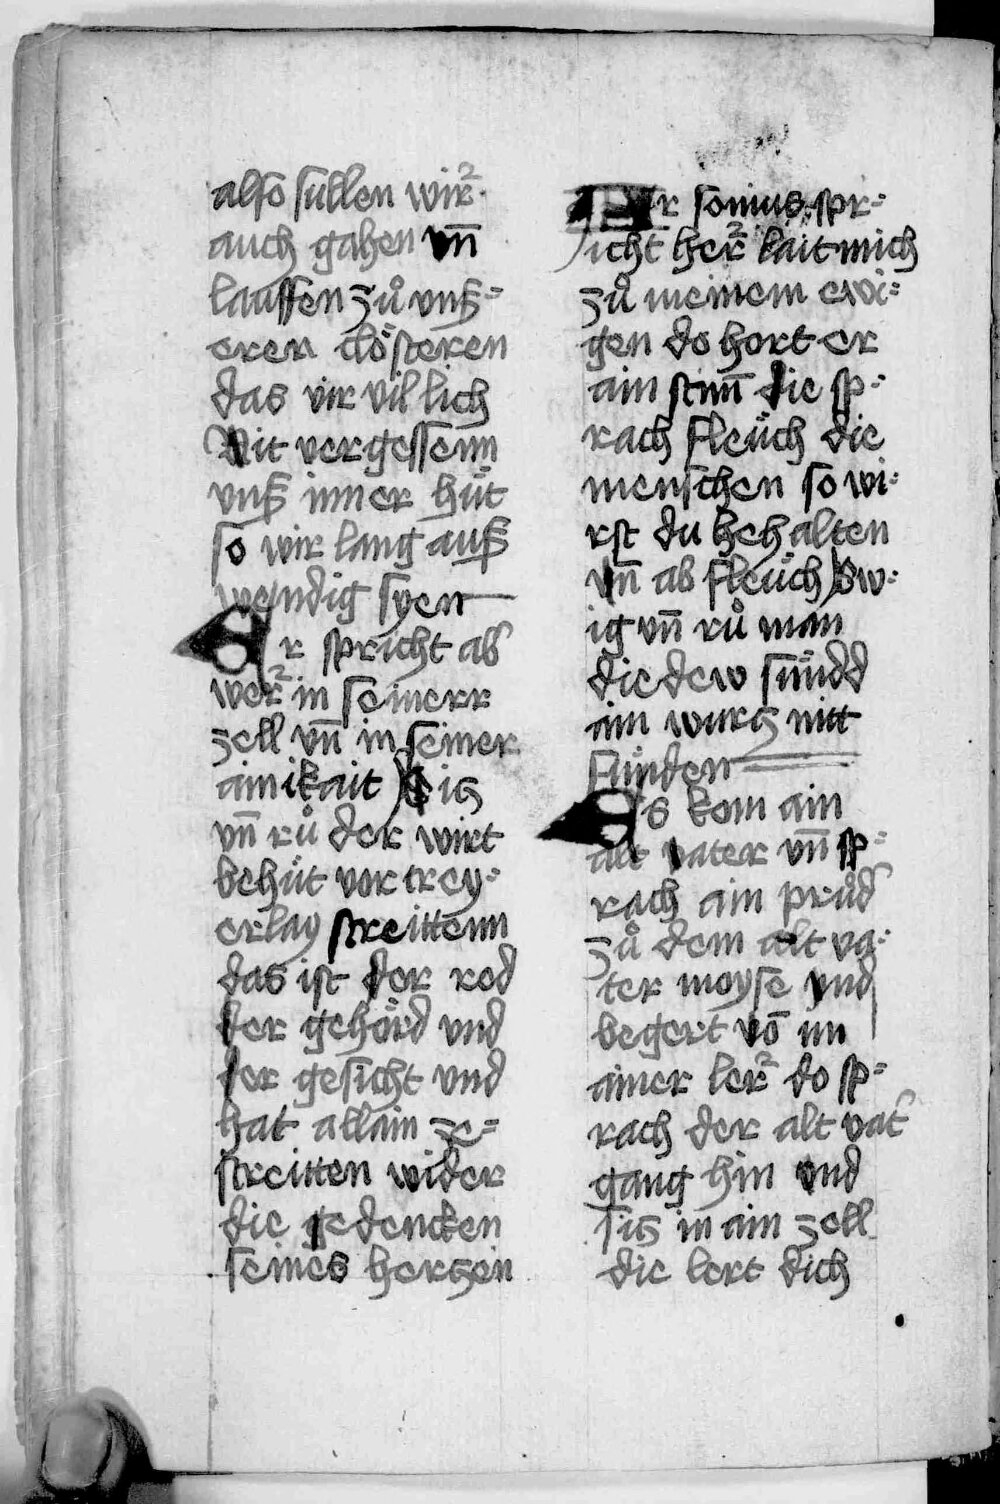 also sullen wir
auch gahen vnͤ
lauffen zů vnß=
eren clösteren
das vir vil lich
Nit vergessenn
vnß inner hüt
so wir lang auß
wendig syen
Er spricht ab
wer in seinerr
zell vn̄ in seiner
ainikait siz
vn̄ rů der wirt
behüt vor trey=
erlay streittenn
das ist der rod
der gehörd vnd
der gesicht vnd
hat allain ze=
streitten wider
die gedencken
seines herzen
Er sonius spr=
icht her lait mich
zů meinem ewi=
gen do hort er
ain stim̄ die sp=
rach fleüch die
menschen so wi=
rst du behalten
vn̄ ab fleüch sw=
ig vn̄ rů wan
die dew sündd
ain wurz nitt
fünden
Es kom ain
alt vater vn̄ sp=
rach ain průd
zů dem alt va=
ter moyse vnd
begert vō im
ainer ler do sp=
rach der alt vat
gang hin vnd
siz in ain zell
die lert dich